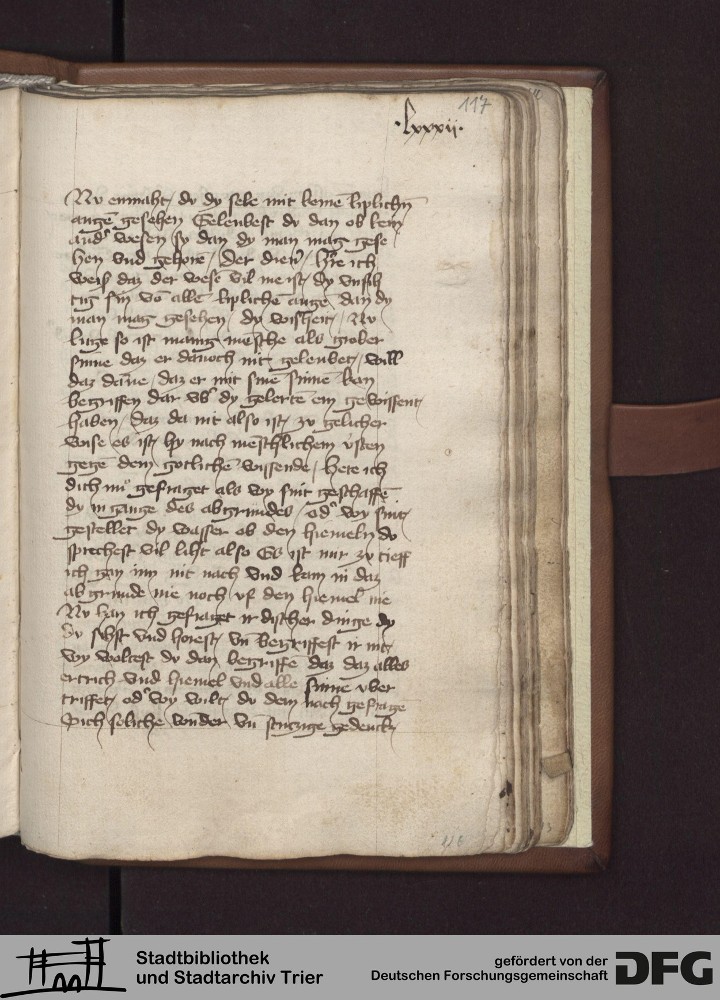 117
·lxxxij·
Nv enmaht dv dy sele mit keinē liplichn
augē gesehen Gelenbest dv dan ob kein
andˢ wesen sy dan dy man mag gese
hen vnd gehore / Der dienˢ / H're ich
weis daz der wese vil me ist / dy vnsih
tig sin vō allē liplichē auge dan dy
man mag gesehen / dy wisheit / Nv
luge so ist manig mēsche als grober
sinne daz er dānoch nit gelenbet / will
daz dāne / daz er mit sinē sinnē kan
begriffen dar vb' dy gelertē ein gewissent
haben / daz da nit also ist / zv gelicher
wise es ist / hy nach mēschlichem
gegē dem gotlichē wissende / Hete ich
dich nuˢ gefraget als wy sint geschaffē
dy ingange des abgrundes / odˢ wy sint
gestellet dy wasser ob den hiemeln dv
sprechest vil liht also Es ist mir zv tieff
ich gan im nit nach vnd kam in daz
abgrunde nie noch vf den hiemel nie
Nv han ich gefraget irdischer dinge dy
dv sihst vnd horest / vn̄ begriffest ir nit /
wy woltest dv dan begriffē daz daz alles
ertrich vnd hiemel vnd alle sinne vber
triffet / odˢ wy wilt dv dem nach gefragē
Dich soliche wnder vn̄ gedenck
Stadtbibliothek
und Stadtarchiv Trier
gefördert von der
Deutschen Forschungsgemeinschaft
DFG